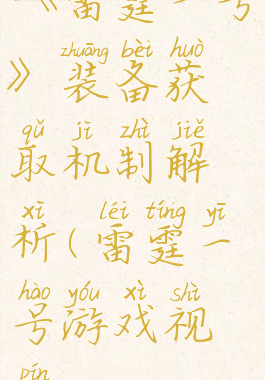 《雷霆一号
zhuāng bèi huò
》装备获
qǔ jī zhì jiě
取机制解
xī léi tíng yī
析(雷霆一
hào yóu xì shì
号游戏视
pín